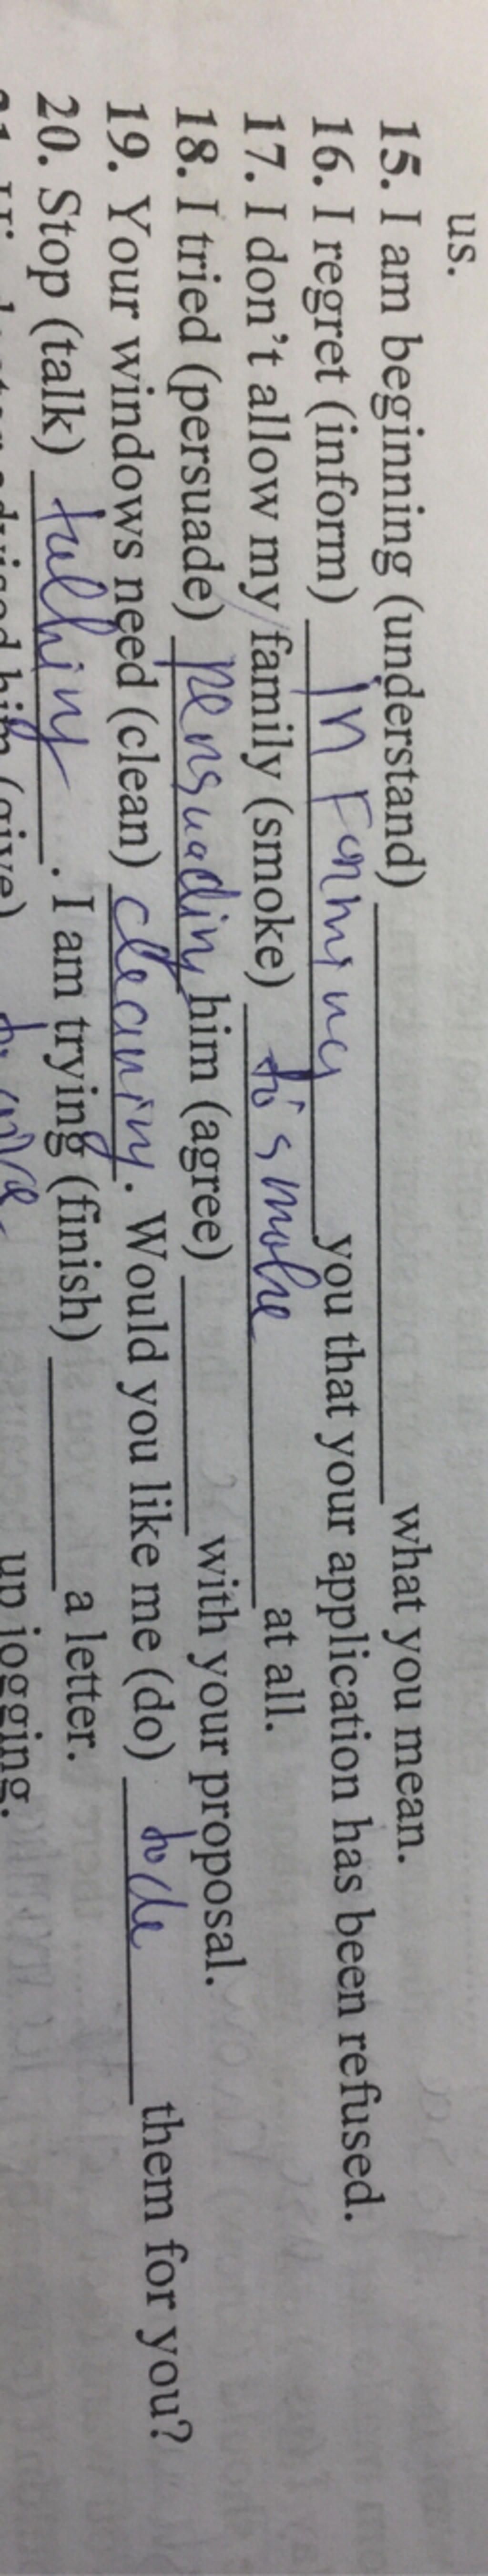 us.
15. I am beginning (understand) ____________ what you mean.
16. I regret (inform) informing you that your application has been refused.
17. I don't allow my family (smoke) to smoke at all.
18. I tried (persuade) persuading him (agree) ______ with your proposal.
19. Your windows need (clean) cleaning. Would you like me (do) to do them for you?
20. Stop (talk) talking. I am trying (finish) ______ a letter.
advised him (give) up jogging.